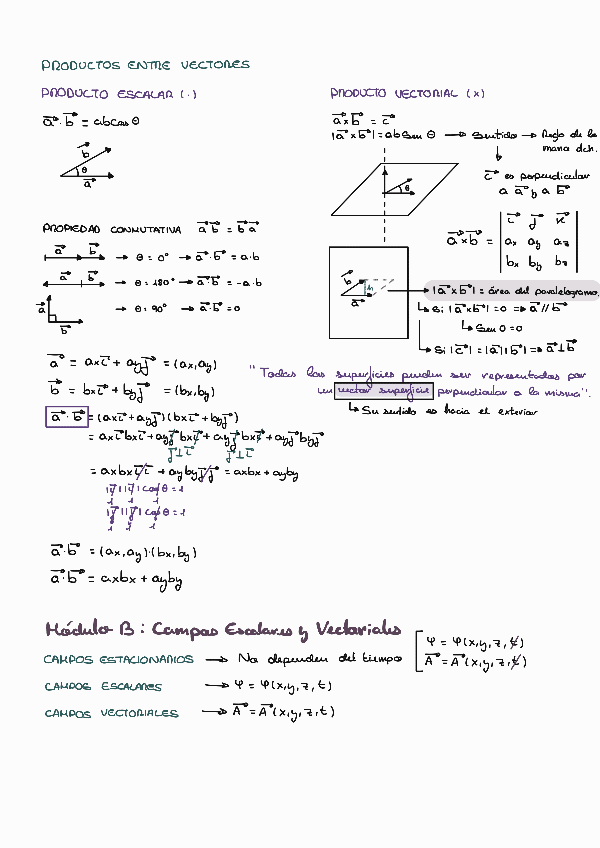 PRODUCTOS ENTRE VECTORES
PRODUCTO ESCALAR (·)
a⃗·b⃗ = abcos θ
b⃗
θ
a⃗
PROPIEDAD CONMUTATIVA a⃗ b⃗ = b⃗ a⃗
a⃗ b⃗ → θ = 0° → a⃗·b⃗ = a·b
a⃗ b⃗ → θ = 180° → a⃗·b⃗ = -a·b
a⃗ b⃗ → θ = 90° → a⃗·b⃗ = 0
a⃗ = axi⃗ + ayj⃗ = (ax,ay)
b⃗ = bxi⃗ + byj⃗ = (bx,by)
a⃗·b⃗ = (axi⃗+ayj⃗)(bxi⃗+byj⃗)
= axi⃗bxi⃗+axi⃗byj⃗+ayj⃗bxi⃗+ayj⃗byj⃗
j⃗⊥i⃗ j⃗⊥i⃗
= axbx i⃗ i⃗ + ayby j⃗ j⃗ = axbx + ayby
|i⃗||i⃗|cosθ = 1
1 1 1
|j⃗||j⃗|cosθ = 1
1 1 1
a⃗·b⃗ = (ax,ay)·(bx,by)
a⃗·b⃗ = axbx + ayby
PRODUCTO VECTORIAL (x)
a⃗xb⃗ = c⃗
|a⃗xb⃗| = ab sen θ → Sentido → Regla de la
mano dch.
c⃗ es perpendicular
a a⃗ y a b⃗
θ
a⃗xb⃗ = | i⃗ j⃗ k⃗ |
ax ay az
bx by bz
b⃗
h
a⃗
|a⃗xb⃗| = área del paralelogramo.
↳ Si |a⃗xb⃗| = 0 ⇒ a⃗ // b⃗
↳ Sen 0 = 0
↳ Si |c⃗| = |a⃗||b⃗| ⇒ a⃗⊥b⃗
"Todas las superficies pueden ser representadas por
un vector superficie perpendicular a la misma".
↳ Su sentido es hacia el exterior
Módulo B: Campos Escalares y Vectoriales
CAMPOS ESTACIONARIOS → No dependen del tiempo
φ = φ(x,y,z,t)
A⃗ = A⃗(x,y,z,t)
CAMPOS ESCALARES → φ = φ(x,y,z,t)
CAMPOS VECTORIALES → A⃗ = A⃗(x,y,z,t)